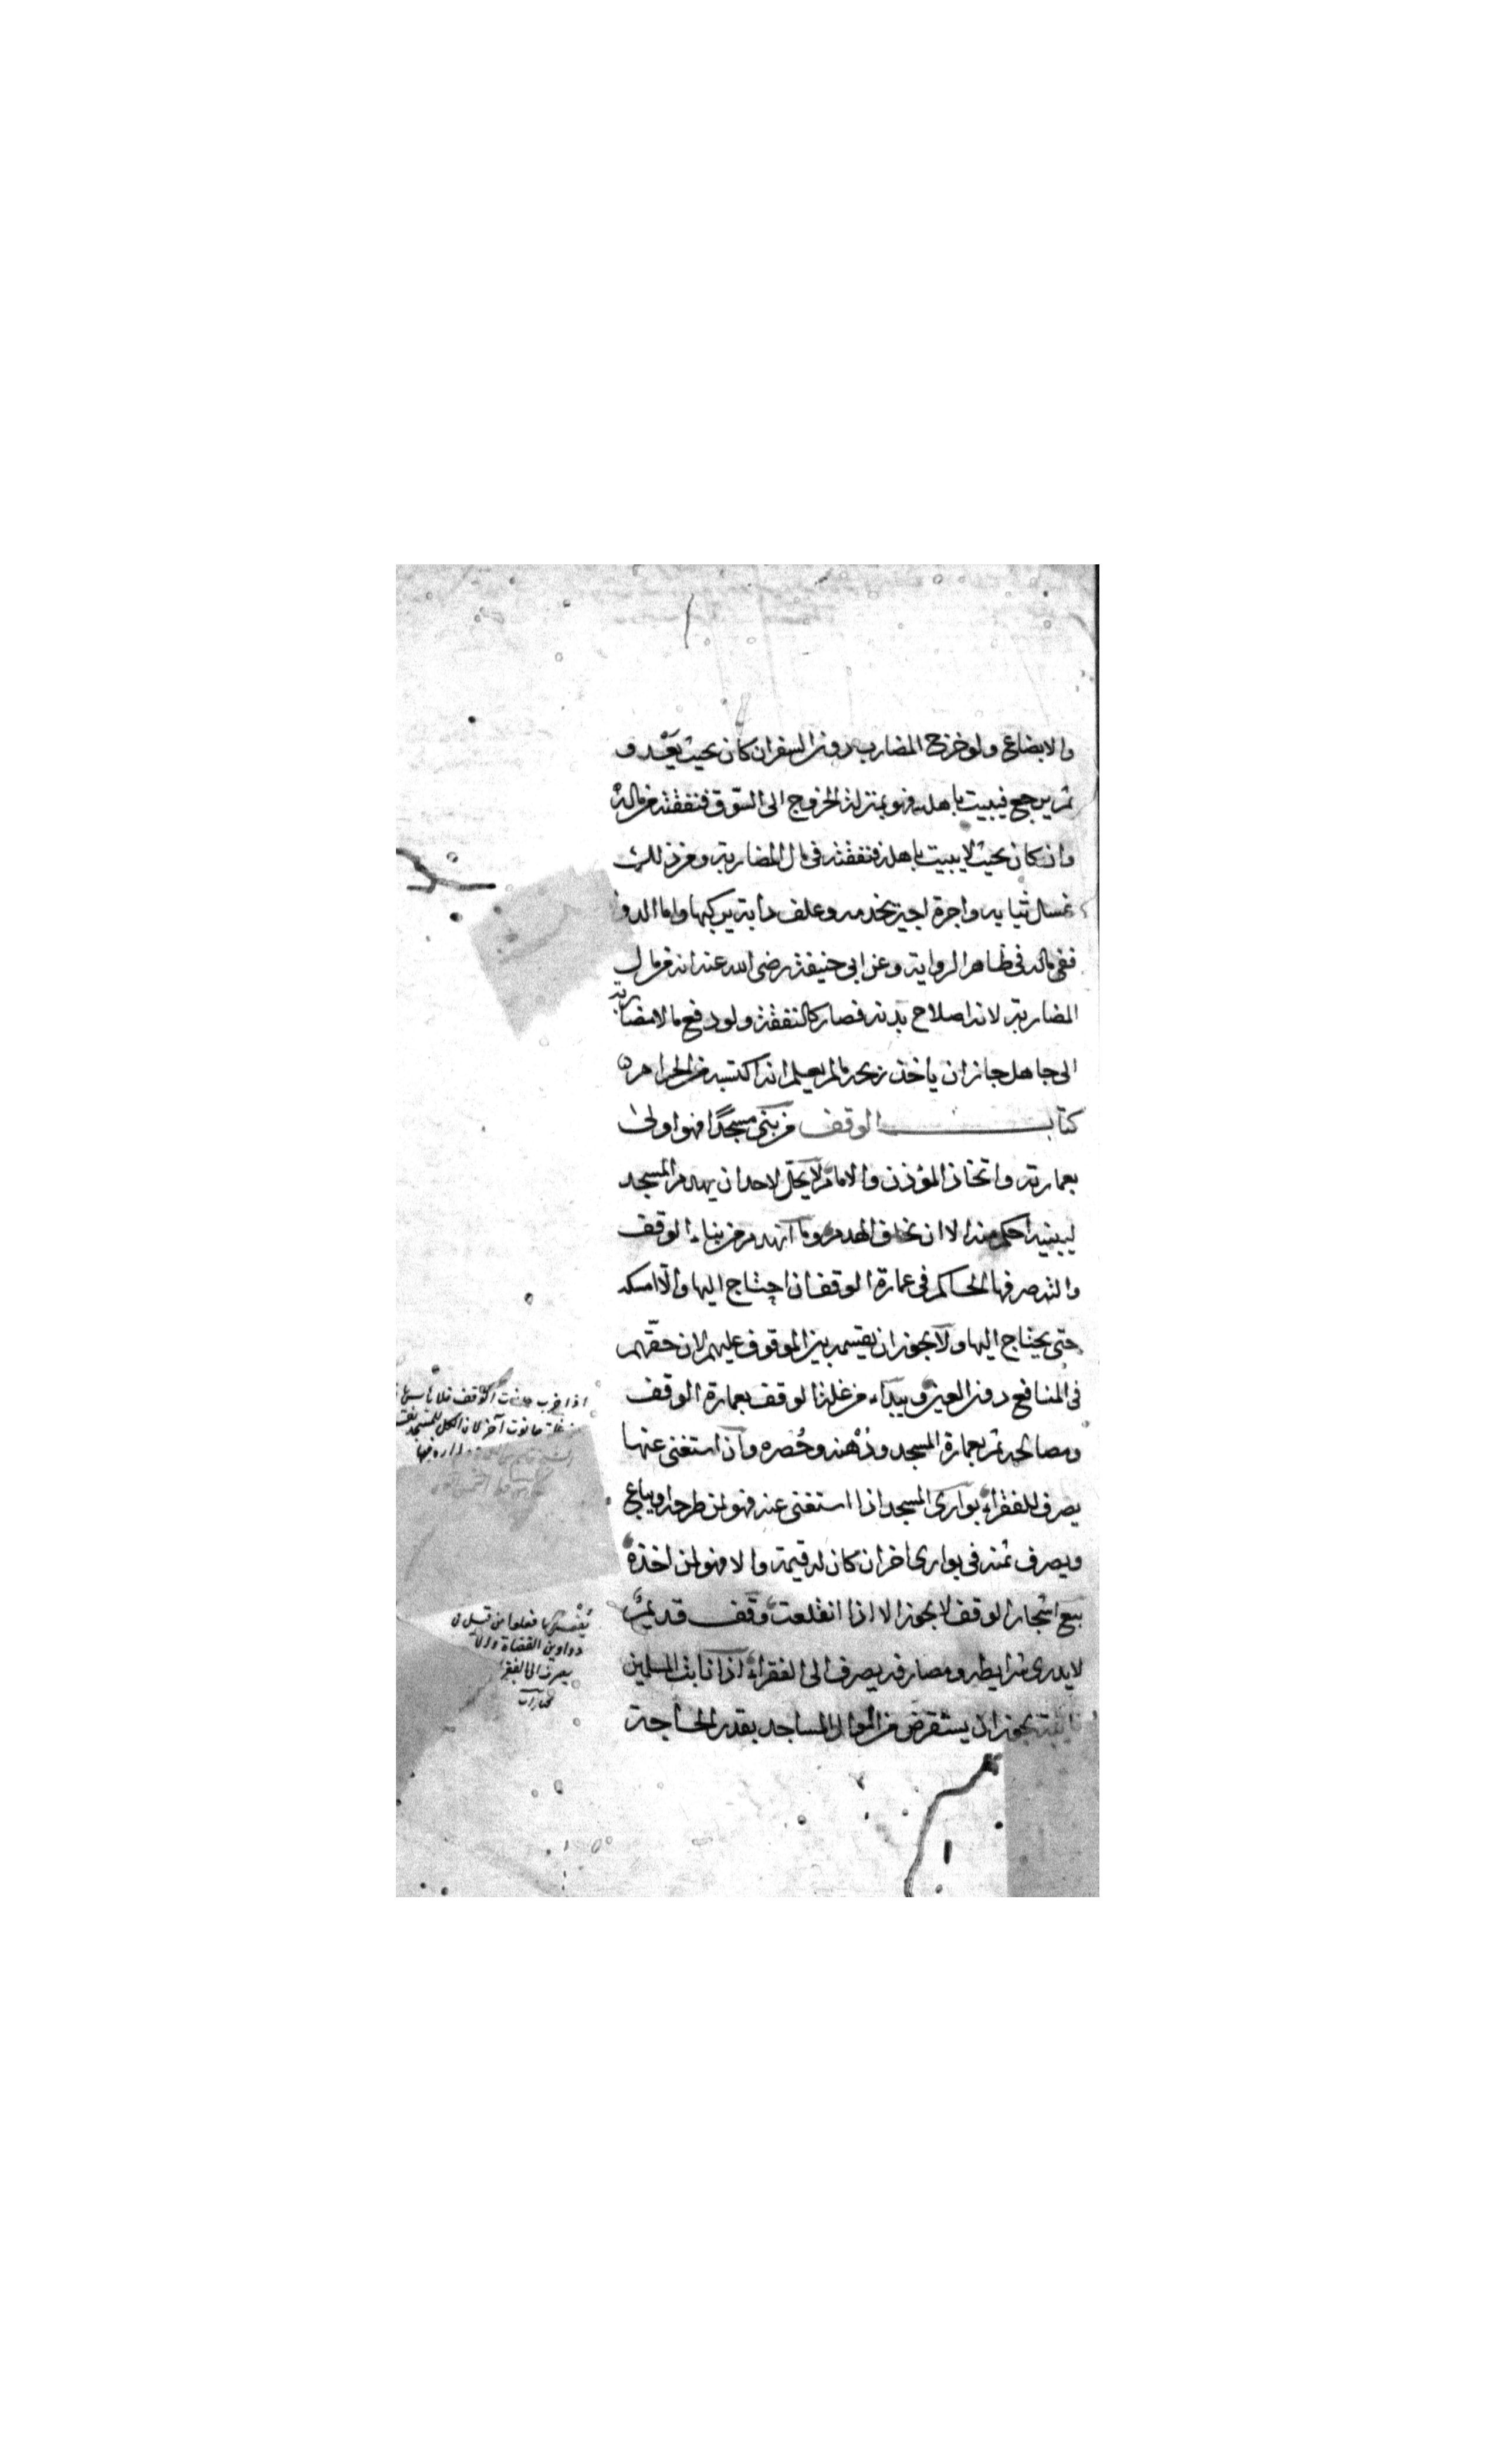 والابضاع ولو خرج المضارب دون السفر ان كان بحيث يغدو
ثم يرجع فيبيت باهله فهو بمنزلة الخروج الى السوق فنفقته من ماله
وان كان بحيث لا يبيت باهله فنفقته فى مال المضاربة ومن ذلك
غسل ثيابه واجرة اجير يخدمه وعلف دابة يركبها واما الدوا
ففى ماله فى ظاهر الرواية وعن ابى حنيفة رضى الله عنه انه من مال
المضاربة لانه اصلاح بدنه فصار كالنفقة ولو دفع مالا مضاربة
الى جاهل جاز ان ياخذ ربحه ما لم يعلم انه اكتسبه من الحرام
كتاب الوقف من بنى مسجدًا فهو اولى
بعمارته واتخاذ المؤذن والامام لا يحل لاحد ان يهدم المسجد
ليبنيه احكم منه الا ان يخاف الهدم وما انهدم من بناء الوقف
والته صرفها الحاكم فى عمارة الوقف ان احتاج اليها والا امسكه
حتى يحتاج اليها ولا يجوز ان يقسمه بين الموقوف عليهم لان حقهم
فى المنافع دون العين ويبداء من غلة الوقف بعمارة الوقف
ومصالحه ثم بعمارة المسجد ودُهنه وحُصره وان استغنى عنها
يصرف للفقراء بوارى المسجد اذا استغنى عنه فهو لمن طرحه او يباع
ويصرف ثمنه فى بوارى اخر ان كان له قيمة والا فهو لمن اخذه
بيع اشجار الوقف لا يجوز الا اذا انقلعت وقف قديم
لا يدرى شرايطه ومصارفه يصرف الى الفقراء اذا نابت المسلمين
نايبة يجوز ان يستقرض من اموال المساجد بقدر الحاجة
اذا خرب حانوت الوقف فلا باس
غلة حانوت آخر لان الكل للمسجد
فعلوا من قبل
دواوين القضاة والا
يصرف الى الفقرا